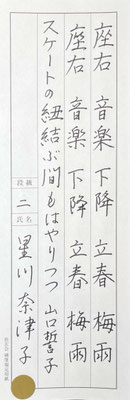 座右 音楽 下降 立春 梅雨
座右 音楽 下降 立春 梅雨
スケートの紐結ぶ間もはやりつつ 山口誓子
段級 二 氏名 星川奈津子